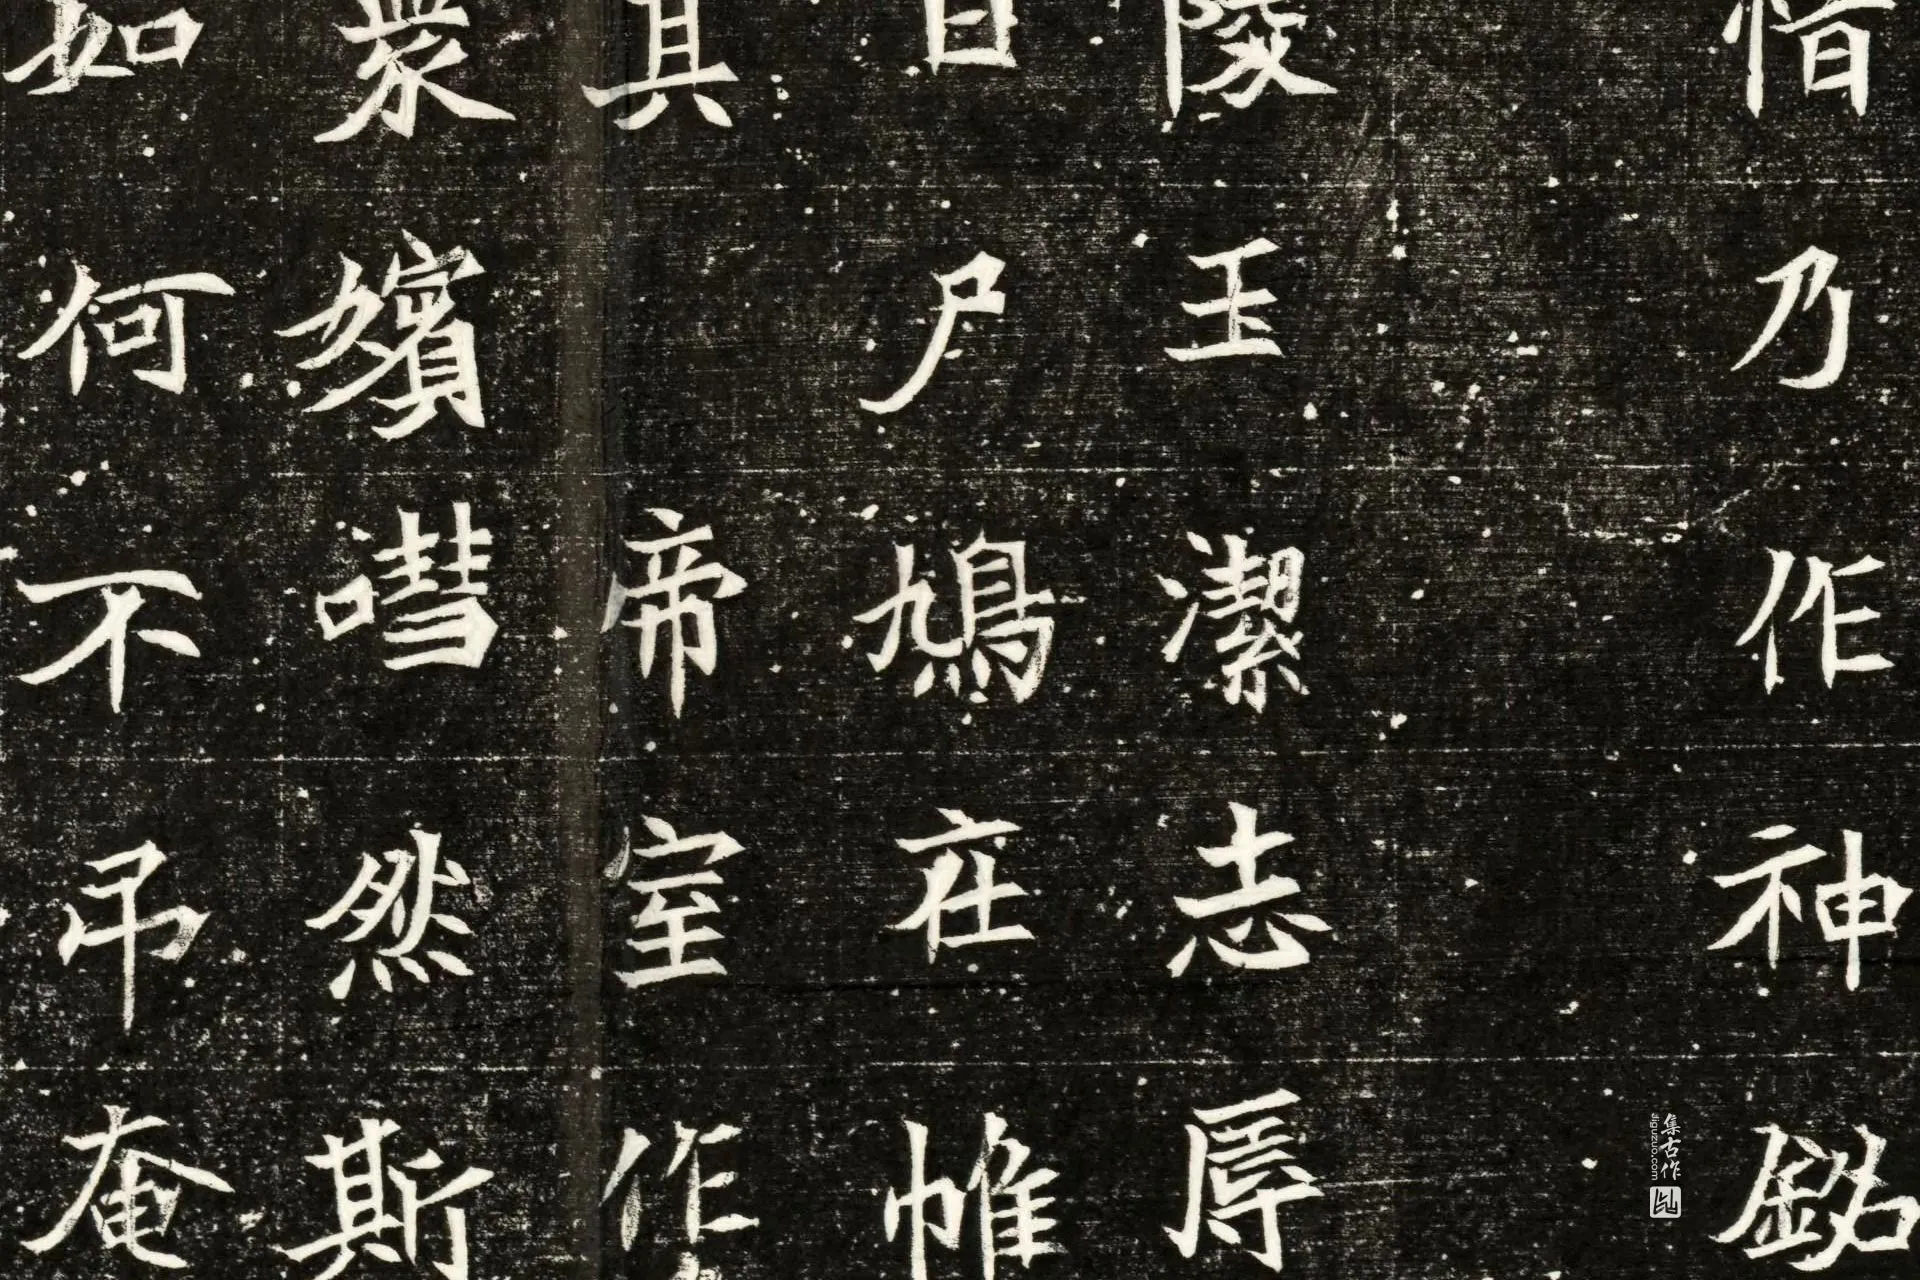 惜乃作神銘
陵玉潔志厚
尸鳩在帷
其 帝室作
眾嬪嘒然斯
如何不弔奄
集古作
jiguzuo.com